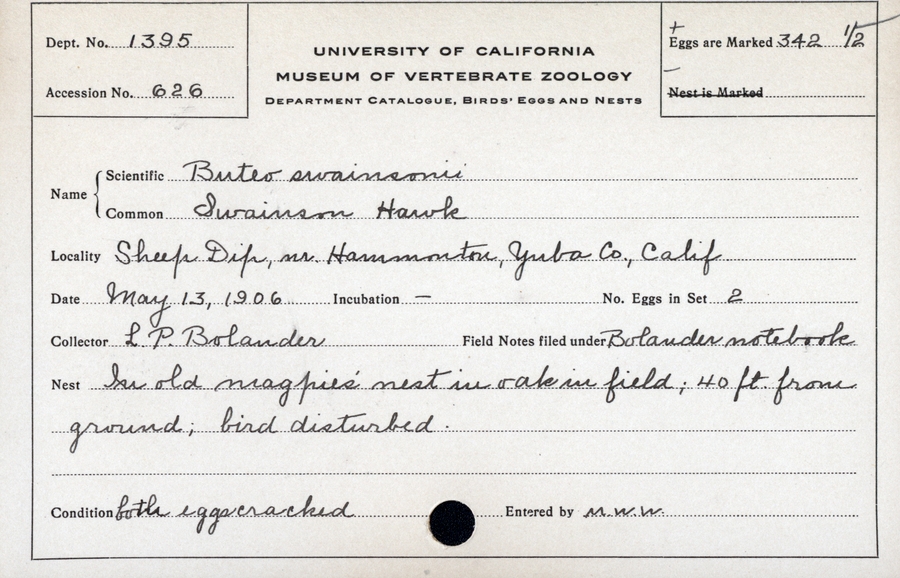 Dept. No. 1395
Accession No. 626
UNIVERSITY OF CALIFORNIA
MUSEUM OF VERTEBRATE ZOOLOGY
DEPARTMENT CATALOGUE, BIRDS' EGGS AND NESTS
+
Eggs are Marked 342 1/2
–
Nest is Marked
Name { Scientific Buteo swainsonii
Common Swainson Hawk
Locality Sheep Dip, nr. Hammonton, Yuba Co., Calif
Date May 13, 1906 Incubation — No. Eggs in Set 2
Collector L. P. Bolander Field Notes filed under Bolander notebook
Nest In old magpies' nest in oak in field; 40 ft from
ground; bird disturbed.
Condition both eggs cracked Entered by m.w.w.